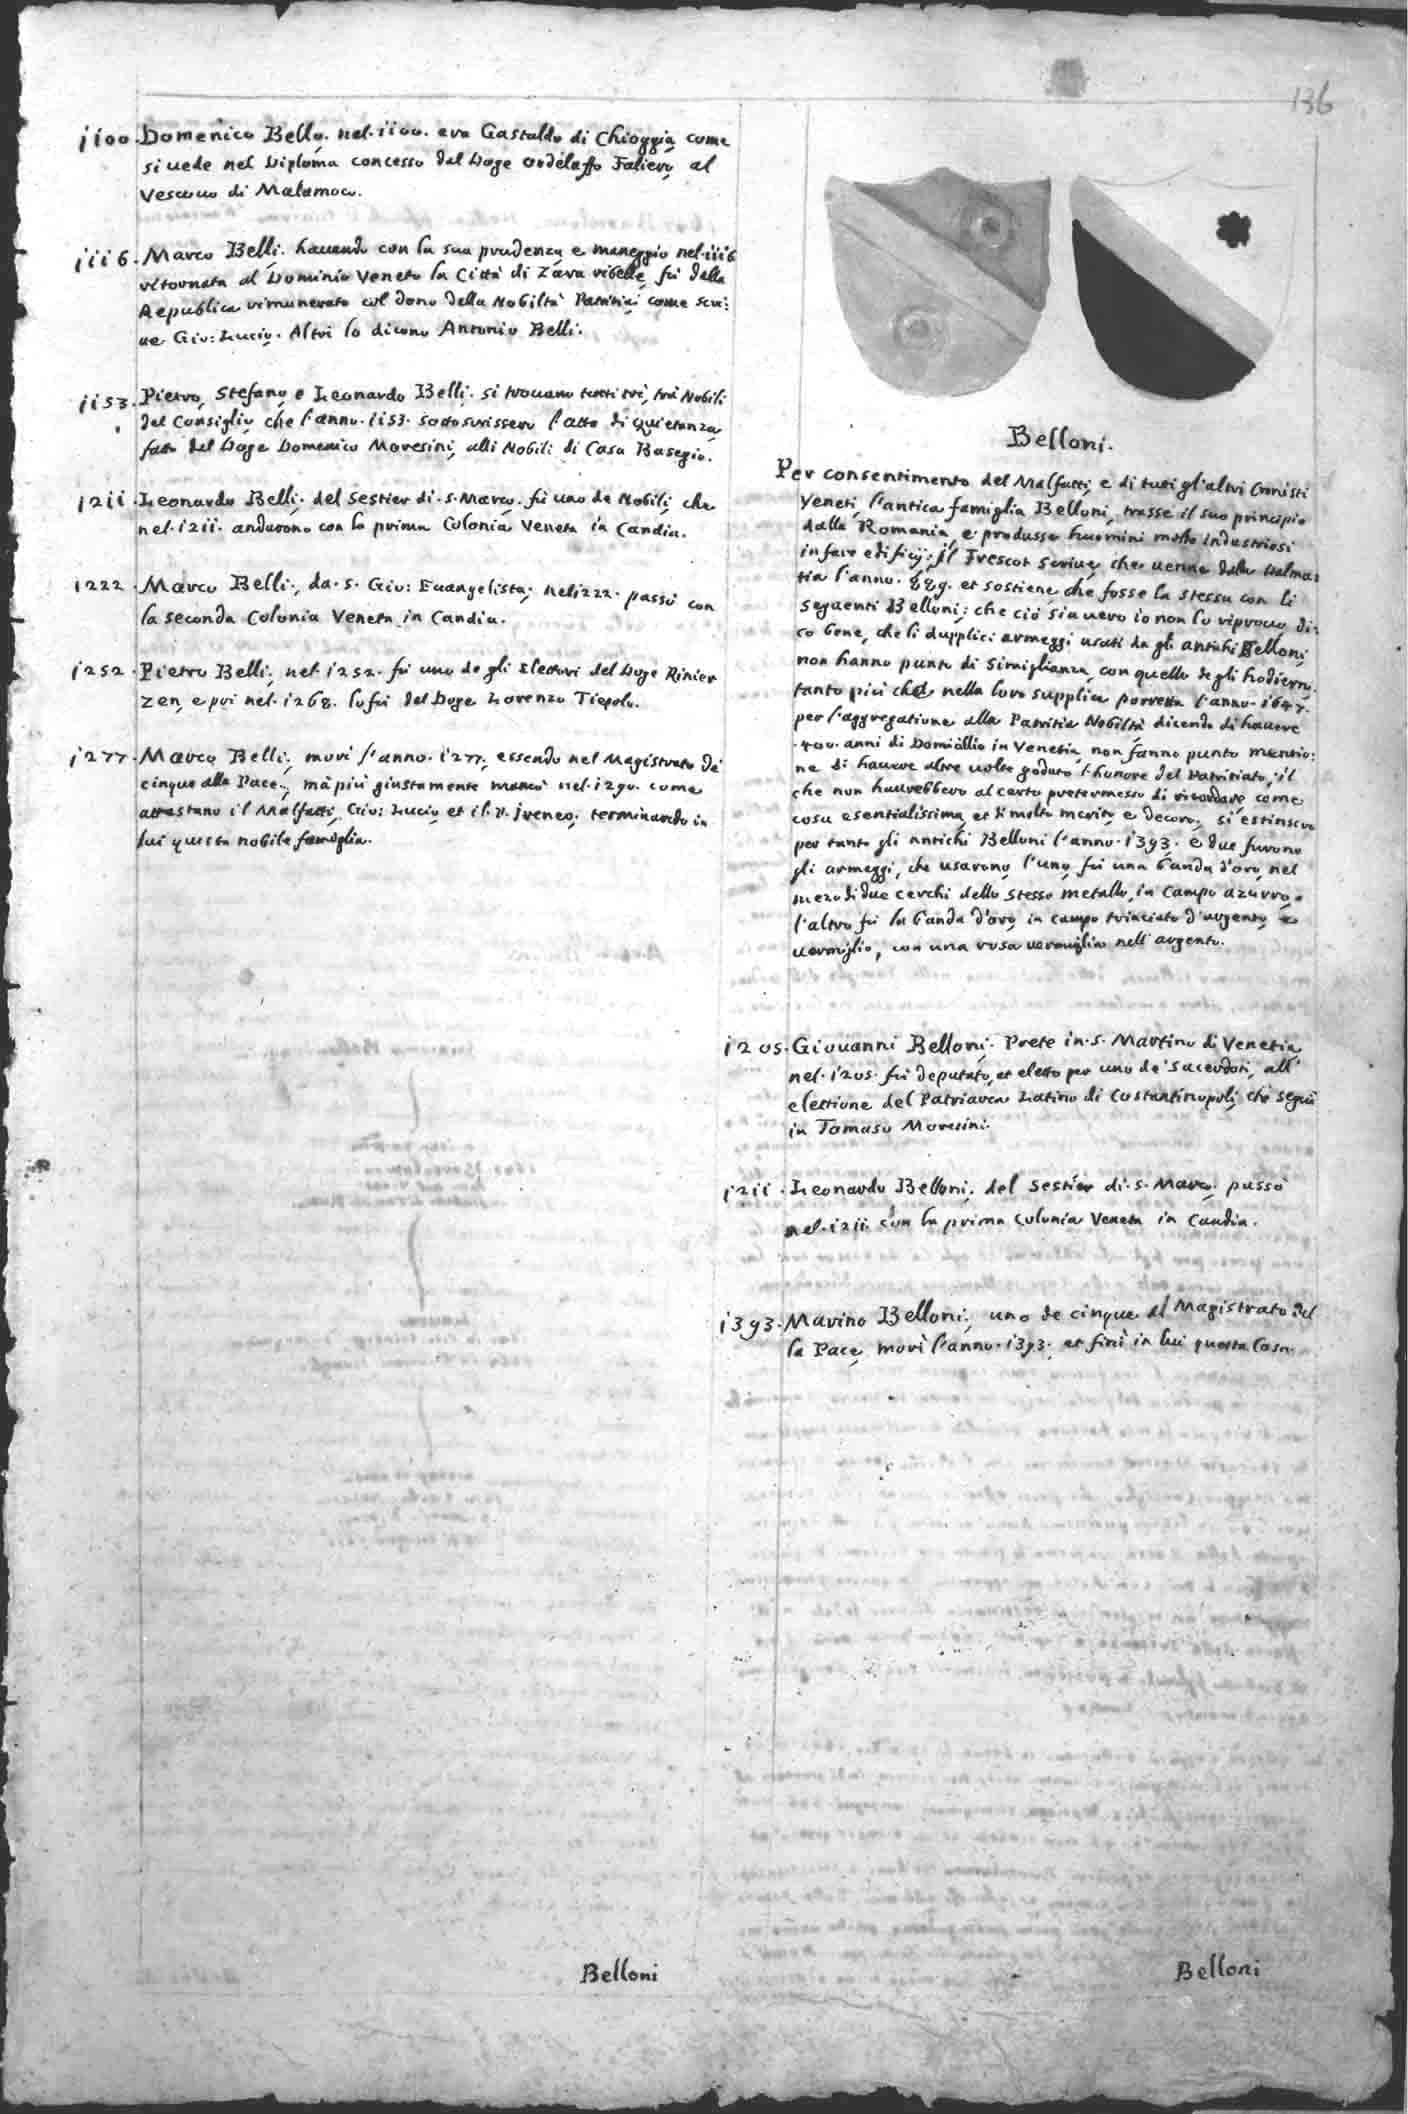 136
1100. Domenico Bello. nel. 1100. era Gastaldo di Chioggia, come
si uede nel Diploma concesso dal Doge Ordelaffo Falier, al
Vescouo di Malamoco.
1116. Marco Belli. hauendo con la sua prudenza e maneggio nel. 1116
ritornata al Dominio Veneto la Città di Zara ribelle, fù dalla
Republica rimunerato col dono della Nobiltà Patritia, come scri:
ue Gio: Lucio. Altri lo dicono Antonio Belli.
1153. Pietro, Stefano, e Leonardo Belli. si trouano tutti trè, trà Nobili
del Consiglio, che l'anno. 1153. sottoscrissero l'atto di quietanza,
fatto dal Doge Domenico Moresini, alli Nobili di Casa Basegio.
1211. Leonardo Belli. del sestier di. S. Marco. fù uno de Nobili, che
nel. 1211. andarono con la prima Colonia Veneta in Candia.
1222. Marco Belli., da. S. Gio: Euangelista; nel 1222. passò con
la seconda Colonia Veneta in Candia.
1252. Pietro Belli., nel. 1252. fù uno de gli Elettori del Doge Rinier
Zen, e poi nel. 1268. lo fù del Doge Lorenzo Tiepolo.
1277. Marco Belli., morì l'anno. 1277., essendo nel Magistrato de'
cinque alla Pace., mà più giustamente mancò nel. 1290. come
attestano il Malfatti, Gio: Lucio, et il. P. Ireneo, terminando in
lui questa nobile famiglia.
Belloni
Belloni.
Per consentimento del Malfatti, e di tuti gl'altri Cronisti
Veneti, l'antica famiglia Belloni, trasse il suo principio
dalla Romania, e produsse huomini molto industriosi
in fare edificij; Il Frescot scriue, che uenne dalla Dalma:
tia l'anno. 889. et sostiene che fosse la stessa con li
seguenti Belloni; che ciò sia uero io non lo riprouo, di:
co bene, che li dupplici armeggi usati da gli antichi Belloni,
non hanno punto di simiglianza, con quello de gli hodierni.
tanto più che nella loro supplica porretta l'anno. 1647.
per l'aggregatione alla Patritia Nobiltà dicendo di hauere
.400. anni di Domicilio in Venetia, non fanno punto mentio:
ne di hauere altre uolte goduto l'honore del Patritiato, il
che non haurebbero al certo pretermesso di ricordare, come
cosa esentialissima, et di molto merito, e decoro. si estinsero
per tanto gli antichi Belloni l'anno. 1393. e due furono
gli armeggi, che usarono, l'uno, fù una banda d'oro, nel
mezo di due cerchi dello stesso metallo, in campo azurro, e
l'altro fù la banda d'oro, in campo trinciato d'argento, e
uermiglio, con una rosa uermiglia nell'argento.
1205. Giouanni Belloni. Prete in. S. Martino di Venetia,
nel. 1205. fù deputato, et eletto per uno de' sacerdoti, all'
elettione del Patriarca Latino di Costantinopoli, che seguì
in Tomaso Moresini.
1211. Leonardo Belloni. del sestier di. S. Marco. passò
nel. 1211. con la prima colonia Veneta in Candia.
1393. Marino Belloni., uno de cinque al Magistrato del
la Pace, morì l'anno. 1393. et finì in lui questa Casa.
Belloni